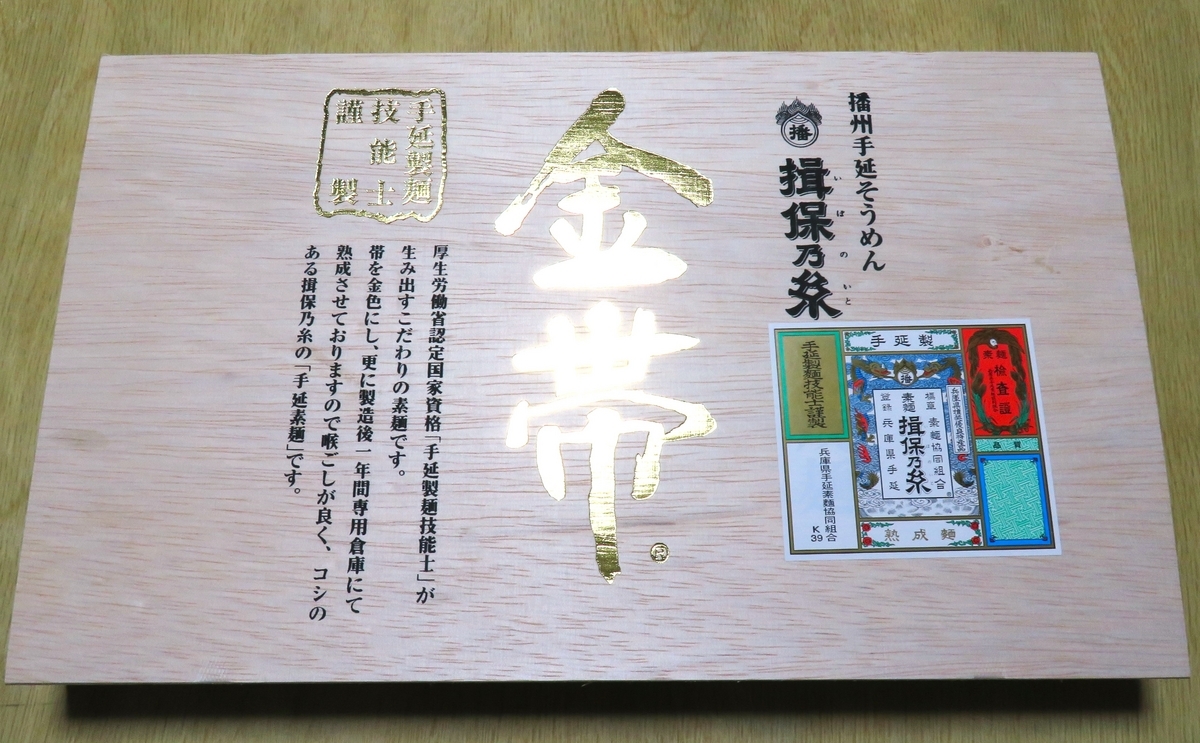 播州手延そうめん
播
揖保乃糸
いぼのいと
金帯
®
手延製麺
技能士
謹製
厚生労働省認定国家資格「手延製麺技能士」が
生み出すこだわりの素麺です。
帯を金色にし、更に製造後一年間専用倉庫にて
熟成させておりますので喉ごしが良く、コシの
ある揖保乃糸の「手延素麺」です。
素麺
検査證
品質
手延製
播
兵庫県推奨優良特産品
標章 素麺協同組合
素麺
揖保乃糸
登録 兵庫県手延
熟成麺
手延製麺技能士謹製
兵庫県手延素麺協同組合
K
39